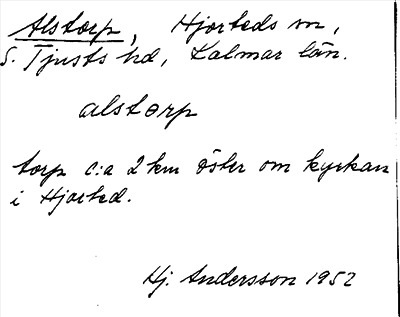 Alstorp, Hjorteds sn,
S. Tjusts hd, Kalmar län.
alstorp
torp c:a 2 km öster om kyrkan
i Hjorted.
Hj. Andersson 1952